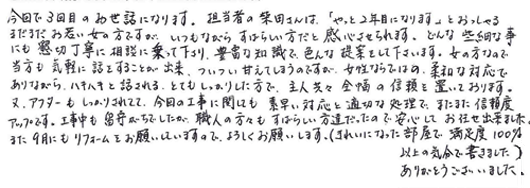 今回で3回目のお世話になります。担当者の柴田さんは、「やっと2年目になります」とおっしゃる
まだまだお若い女の方ですが、いつもながらすばらしい方だと感心させられます。どんな些細な事
にも懇切丁寧に相談に乗って下さり、豊富な知識で、色んな提案をして下さいます。女の方なので
当方も気軽に話をすることが出来、ついつい甘えてしまうのですが、女性ならではの、柔和な対応で
ありながら、ハキハキと話される、とてもしっかりした方で、主人共々全幅の信頼を置いております。
又、アフターもしっかりされてて、今回の工事に関しても素早い対応と適切な処理で、またまた信頼度
アップです。工事中も留守がちでしたが、職人の方々もすばらしい方達だったので安心してお任せ出来ました。
また9月にもリフォームをお願いしていますので、よろしくお願いします。(きれいになった部屋で、満足度100%
以上の気分で書きました)
ありがとうございました。